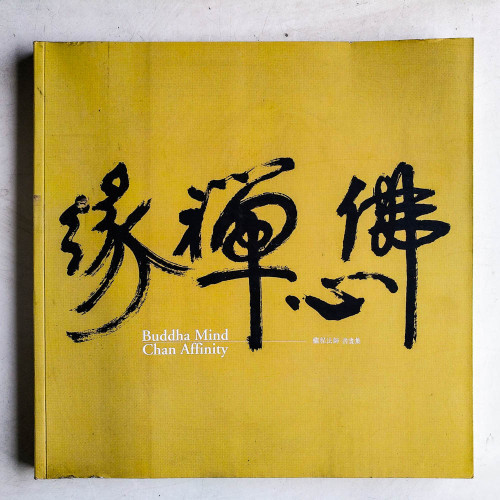 佛心禪緣
Buddha Mind
Chan Affinity